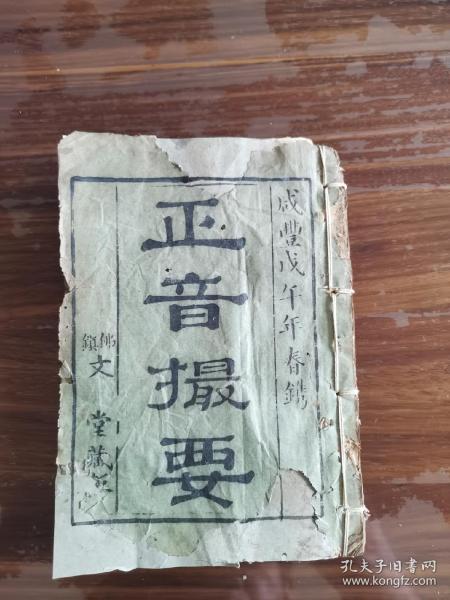 咸豐戊午年春鐫
正音撮要
佛鎮
文堂藏板
孔夫子旧书网
www.kongfz.com